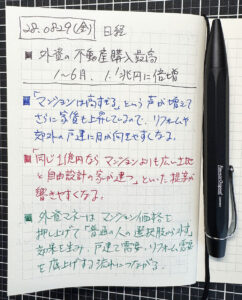 25.0829(金) 日経
■ 外資の不動産購入最高
1〜6月、1.1兆円に倍増
■ 「マンションは高すぎる」という声が増えて
さらに家賃も上昇しているので、リフォームや
郊外の戸建に目が向きやすくなる。
■ 「同じ1億円なら マンションよりも広い土地
と自由設計の家が建つ」といった提案が
響きやすくなる。
■ 外資マネーは マンション価格を
押し上げて「普通の人の選択肢から外す」
効果を生み、戸建て需要、リフォーム需要
を底上げする流れにつながる。